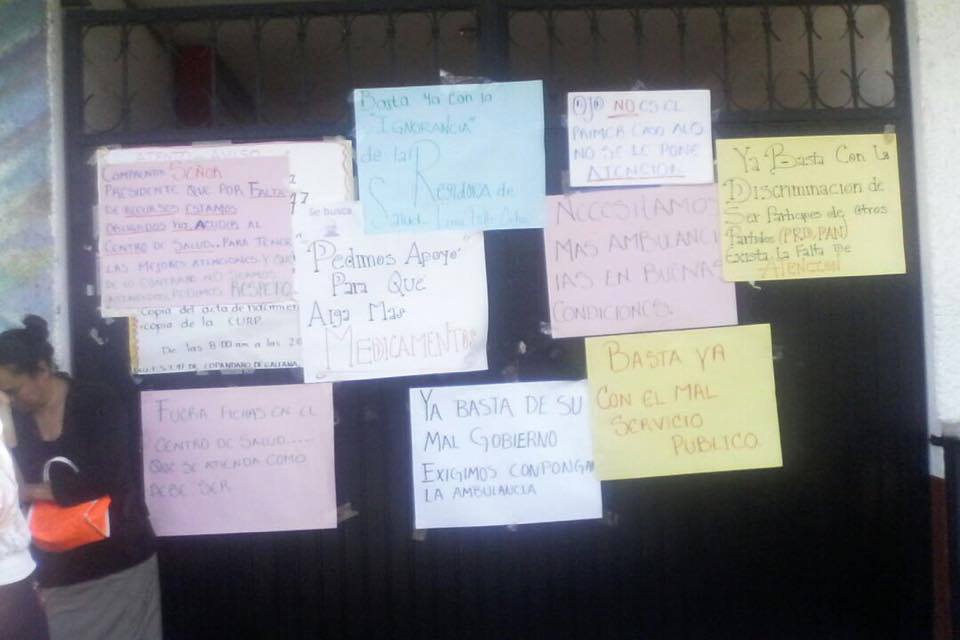 ATENTO AVISO
COMPRENDA SEÑOR
PRESIDENTE QUE POR FALTA
DE RECURSOS ESTAMOS
OBLIGADOS HA ACUDIR AL
CENTRO DE SALUD.. PARA TENER
LAS MEJORES ATENCIONES Y QUE
DE LO CONTRARIO NO SEAMOS
PEDIMOS RESPETO
Copia del acta de nacimien
copia de la CURP
De las 8:00 am a las 2:0
DE COPANDARO DE GALEANA
Basta ya con la
"IGNORANCIA"
de la Regidora de
Salud
Se busca
"Pedimos Apoyo"
Para Que
Aiga Mas
MEDICAMENTOS
OJO NO ES EL
PRIMER CASO ALO
NO SE LE PONE
ATENCION
NECESITAMOS
MAS AMBULANC
IAS EN BUENAS
CONDICIONES.
Ya Basta Con La
Discriminacion de
Ser Participes de Otros
Partidos (PRD, PAN)
Exista La Falta De
ATENCION
FUERA FICHAS EN EL
CENTRO DE SALUD.....
QUE SE ATIENDA COMO
DEBE SER
YA BASTA DE SU
MAL GOBIERNO
EXIGIMOS CONPONGAN
LA AMBULANCIA
BASTA YA
CON EL MAL
SERVICIO
PUBLICO.